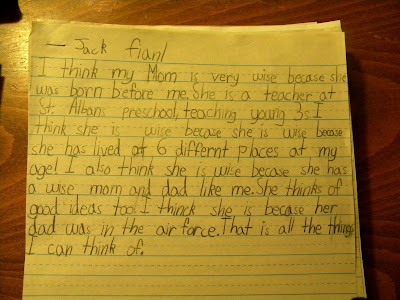 — Jack fianl
I think my Mom is very wise becase she
was born before me. She is a teacher at
St. Albans preschool, teaching young 3s. I
think she is wise becase she is wise becase
she has lived at 6 differnt places at my
age! I also think she is wise becase she has
a wise mom and dad like me. She thinks of
good ideas too! I thinck she is becase her
dad was in the air force. That is all the things
I can think of.